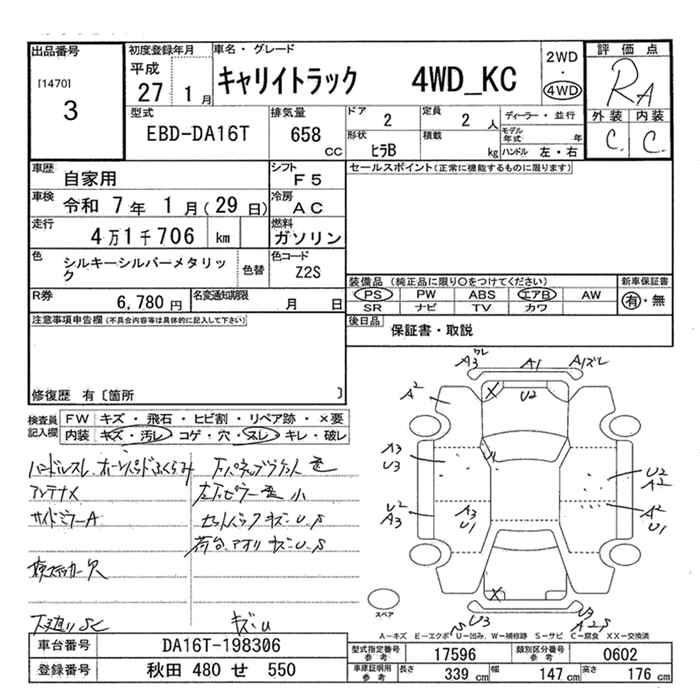 出品番号
[1470]
3
初度登録年月
平成
27 1 月
車名・グレード
キャリイトラック 4WD_KC
2WD
・
4WD
評価点
RA
外装 内装
C C
型式
EBD-DA16T
排気量
658
CC
ドア
2
定員
2 人
形状
ヒラB
積載
kg
ディーラー・並行
モデル年式 年
ハンドル 左・右
車歴
自家用
シフト
F5
車検
令和 7 年 1 月(29 日)
冷房
AC
走行
4万1千706 km
燃料
ガソリン
色
シルキーシルバーメタリック
色替
色コード
Z2S
R券
6,780 円
名変通知期限
月 日
セールスポイント(正常に機能するものに限ります)
装備品 (純正品に限り○をつけてください)
新車保証書
PS PW ABS エアB AW
SR ナビ TV カワ
有・無
後日品
保証書・取説
注意事項申告欄(不具合内容等は具体的に記入して下さい)
修復歴 有〔箇所 〕
検査員記入欄
FW キズ・飛石・ヒビ割・リペア跡・×要
内装 キズ・汚レ コゲ・穴・スレ・キレ・破レ
ハンドルスレ、ホーンパッドふくらみ
アンテナX
サイドミラーA
左下ピラー歪 小
セットバック キズ・U、S
荷台、アオリ キズ・U、S
キズ・U
A2
A1
U2
A3
U3
U2
A3
A3
U1
U2
A2
A2
U1
U3
スペア
A-キズ E-エクボ U-凹み、W-補修跡 S-サビ C-腐食 XX-交換済
車台番号
DA16T-198306
登録番号
秋田 480 せ 550
型式指定番号
参考
17596
類別区分番号
参考
0602
車庫証明用
参考
長さ
339 cm
幅
147 cm
高さ
176 cm